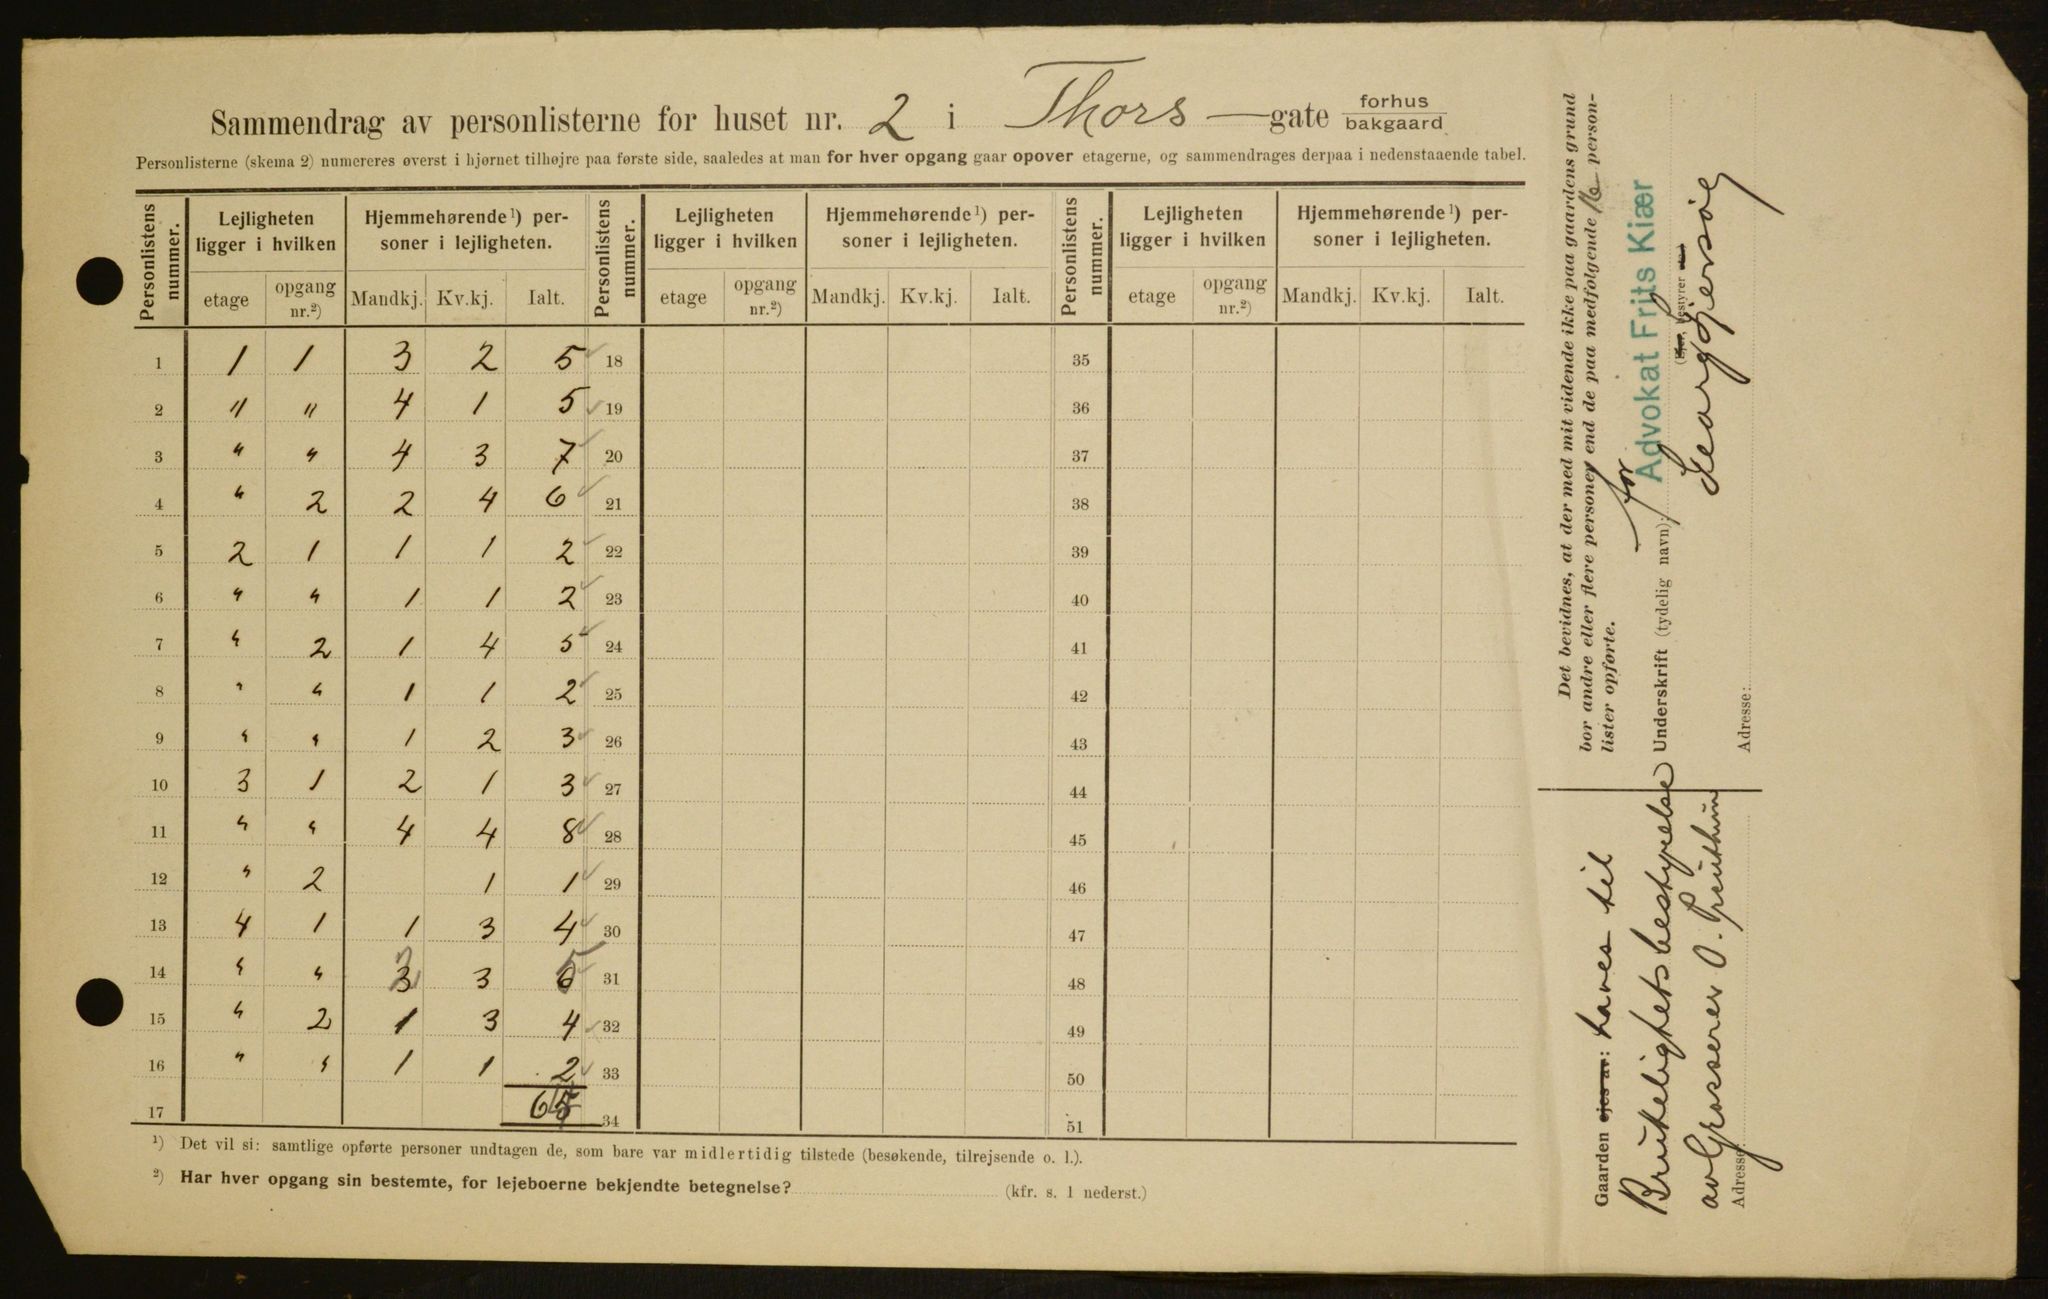 Sammendrag av personlisterne for huset nr. 2 i Thors — gate forhus bakgaard
Personlisterne (skema 2) numereres øverst i hjørnet tilhøjre paa første side, saaledes at man for hver opgang gaar opover etagerne, og sammendrages derpaa i nedenstaaende tabel.
Personlistens nummer. Lejligheten ligger i hvilken Hjemmehørende ¹) personer i lejligheten. Personlistens nummer. Lejligheten ligger i hvilken Hjemmehørende ¹) personer i lejligheten. Personlistens nummer. Lejligheten ligger i hvilken Hjemmehørende ¹) personer i lejligheten.
etage opgang nr.²) Mandkj. Kv.kj. Ialt. etage opgang nr.²) Mandkj. Kv.kj. Ialt. etage opgang nr.²) Mandkj. Kv.kj. Ialt.
1 1 1 3 2 5 ✓ 18 35
2 " " 4 1 5 ✓ 19 36
3 " " 4 3 7 ✓ 20 37
4 " 2 2 4 6 ✓ 21 38
5 2 1 1 1 2 ✓ 22 39
6 " " 1 1 2 ✓ 23 40
7 " 2 1 4 5 ✓ 24 41
8 " " 1 1 2 ✓ 25 42
9 " " 1 2 3 ✓ 26 43
10 3 1 2 1 3 ✓ 27 44
11 " " 4 4 8 ✓ 28 45
12 " 2 1 1 ✓ 29 46
13 4 1 1 3 4 ✓ 30 47
14 " " 3 2 3 6 5 ✓ 31 48
15 " 2 1 3 4 ✓ 32 49
16 " " 1 1 2 ✓ 33 50
17 65 34 51
¹) Det vil si: samtlige opførte personer undtagen de, som bare var midlertidig tilstede (besøkende, tilrejsende o. l.).
²) Har hver opgang sin bestemte, for lejeboerne bekjendte betegnelse? (kfr. s. 1 nederst.)
Det bevidnes, at der med mit vidende ikke paa gaardens grund
bor andre eller flere personer end de paa medfølgende 16 person-
lister opførte.
for
Advokat Frits Kiær
Underskrift (tydelig navn):
(Ejer, bestyrer
Georg
Adresse:
Gaarden ejes av: haves til
Brutelighetsbestyrelse
av Grosserer O.
Adresse: